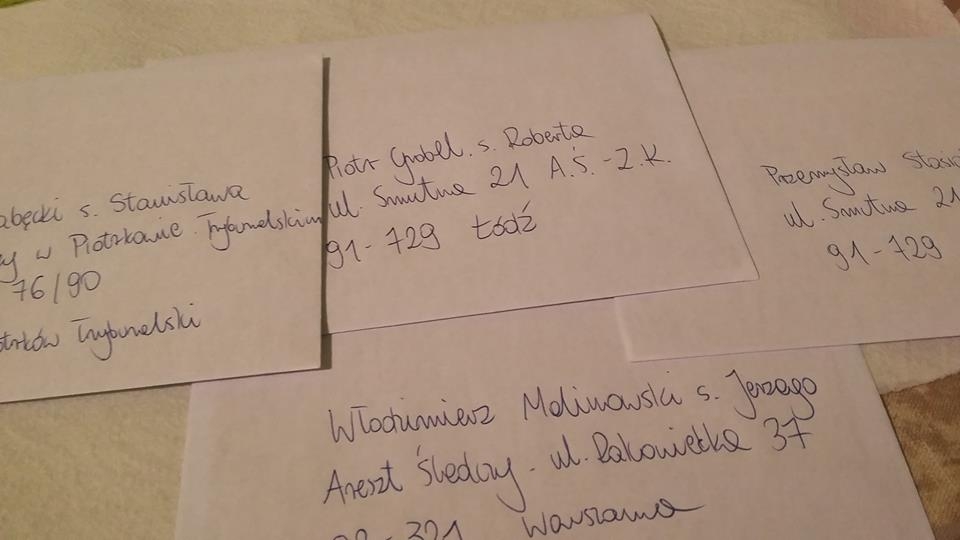 abęcki s. Stanisława
y w Piotrkowie Trybunelskim
76/90
otrków Trybunelski
Piotr Grobel. s. Roberta
ul. Smutna 21 A.Ś.-Z.K.
91-729 Łódź
Przemysław Stasi
ul. Smutna 21
91-729
Włodzimierz Molinowski s. Jerzego
Areszt Śledczy - ul. Rakowiecka 37
Warszawa